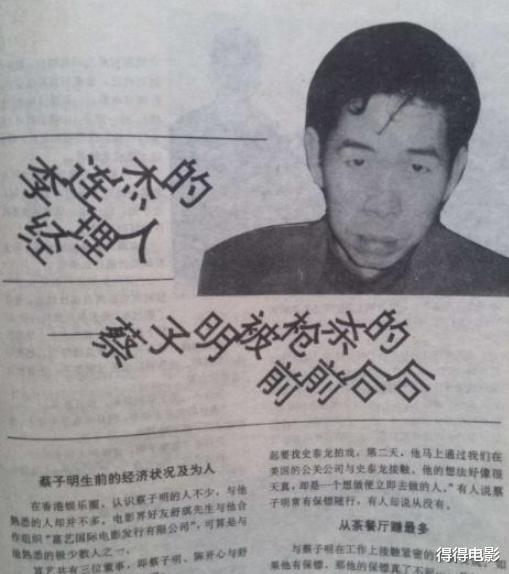 李连杰的
经理人
——蔡子明被枪杀的
前前后后
蔡子明生前的经济状况及为人
在香港娱乐圈，认识蔡子明的人不少，与他
熟悉的人却并不多。电影界好友舒琪先生与他合
作组织“富艺国际电影发行有限公司”，可算是与
他熟悉的极少数人之一。
富艺共有三位董事，即蔡子明、陈开心与舒
起要找史泰龙拍戏，第二天，他马上通过我们在
美国的公关公司与史泰龙接触。他的想法好像很
天真，却是一个想做便立即去做的人。”有人说蔡
子明常有保镖随行，有人却说从没有。
从茶餐厅赚最多
与蔡子明在工作上接触紧密的
果他有保镖，那他的保镖真了不
得得电影